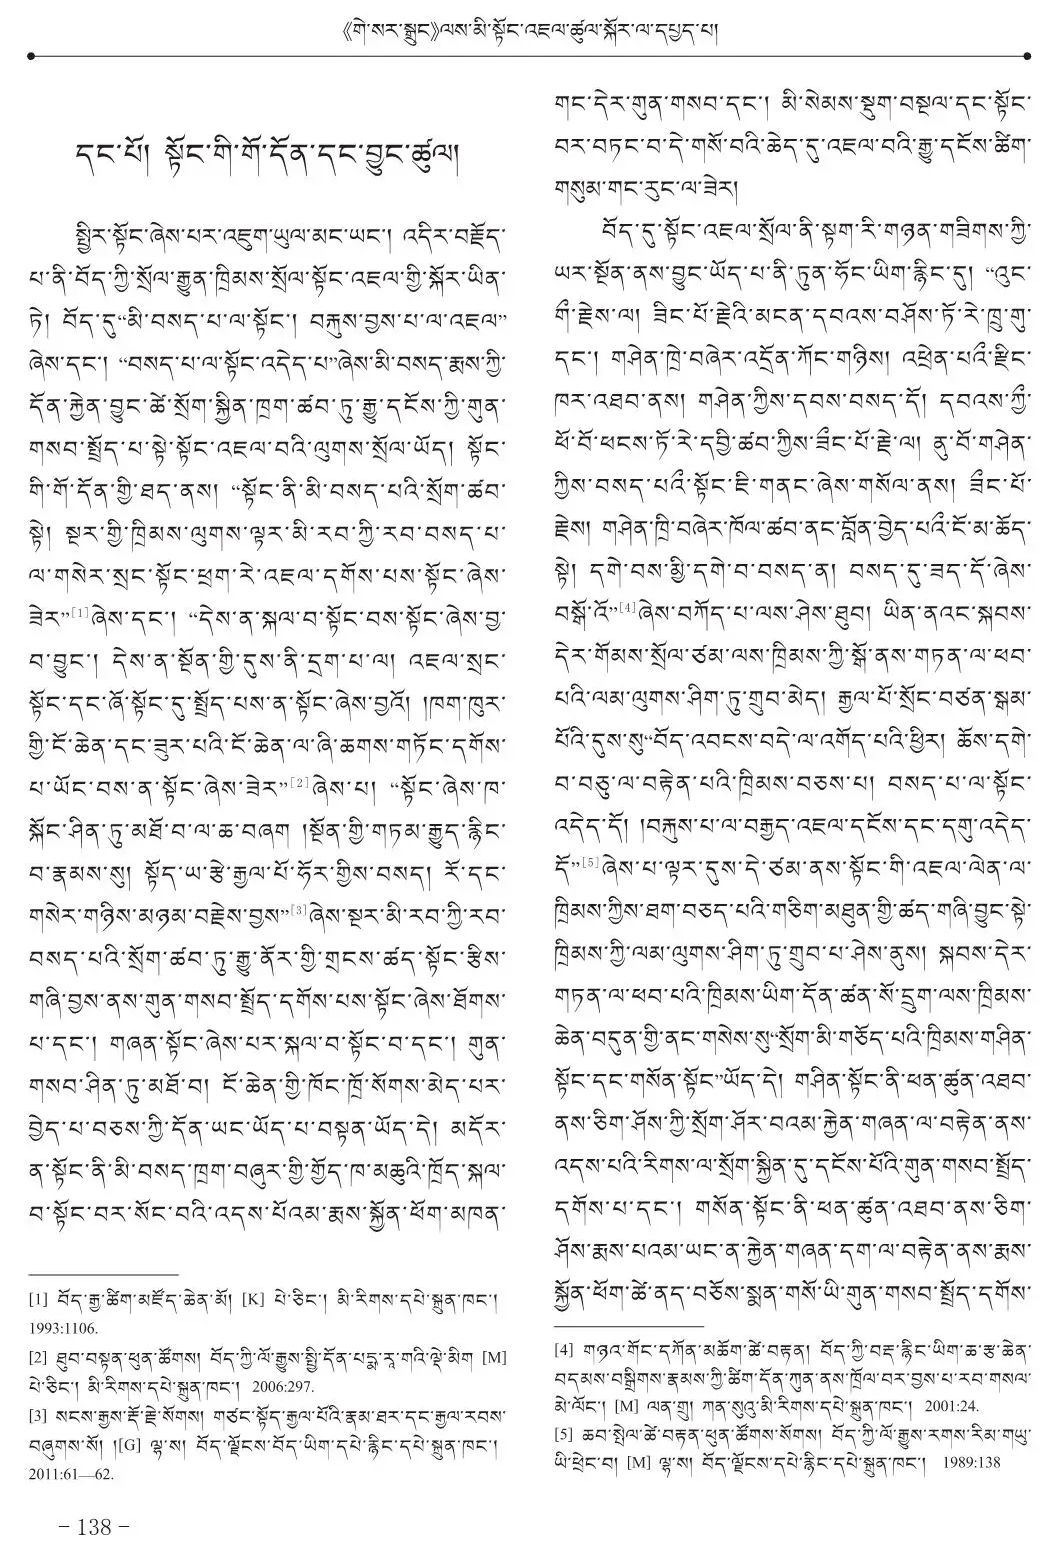 《གེ་སར་སྒྲུང》ལས་མི་སྟོང་འཇལ་ཚུལ་སྐོར་ལ་དཔྱད་པ།
དང་པོ། སྟོང་གི་གོ་དོན་དང་བྱུང་ཚུལ།
སྤྱིར་སྟོང་ཞེས་པར་འཇུག་ཡུལ་མང་ཡང་། འདིར་བརྗོད་
པ་ནི་བོད་ཀྱི་སྲོལ་རྒྱུན་ཁྲིམས་སྲོལ་སྟོང་འཇལ་གྱི་སྐོར་ཡིན་
ཏེ། བོད་དུ“མི་བསད་པ་ལ་སྟོང་། བརྐུས་བྱས་པ་ལ་འཇལ”
ཞེས་དང་། “བསད་པ་ལ་སྟོང་འདེད་པ”ཞེས་མི་བསད་རྨས་ཀྱི་
དོན་རྐྱེན་བྱུང་ཚེ་སྲོག་སྐྱིན་ཁྲག་ཚབ་ཏུ་རྒྱུ་དངོས་ཀྱི་གུན་
གསབ་སྤྲོད་པ་སྟེ་སྟོང་འཇལ་བའི་ལུགས་སྲོལ་ཡོད། སྟོང་
གི་གོ་དོན་གྱི་ཐད་ནས། “སྟོང་ནི་མི་བསད་པའི་སྲོག་ཚབ་
སྟེ། སྔར་གྱི་ཁྲིམས་ལུགས་ལྟར་མི་རབ་ཀྱི་རབ་བསད་པ་
ལ་གསེར་སྲང་སྟོང་ཕྲག་རེ་འཇལ་དགོས་པས་སྟོང་ཞེས་
ཟེར”[1]ཞེས་དང་། “དེས་ན་སྐལ་བ་སྟོང་བས་སྟོང་ཞེས་བྱ་
བ་བྱུང་། དེས་ན་སྔོན་གྱི་དུས་ནི་དྲག་པ་ལ། འཇལ་སྲང་
སྟོང་དང་ཞོ་སྟོང་དུ་སྤྲོད་པས་ན་སྟོང་ཞེས་བྱའོ། །ཁག་ཁུར་
གྱི་ངོ་ཆེན་དང་ཟུར་པའི་ངོ་ཆེན་ལ་ཞི་ཆགས་གཏོང་དགོས་
པ་ཡོང་བས་ན་སྟོང་ཞེས་ཟེར”[2]ཞེས་པ། “སྟོང་ཞེས་ཁ་
སྐོང་ཤིན་ཏུ་མཐོ་བ་ལ་ཆ་བཞག །སྔོན་གྱི་གཏམ་རྒྱུད་རྙིང་
བ་རྣམས་སུ། སྟོད་ཡ་རྩེ་རྒྱལ་པོ་ཧོར་གྱིས་བསད། རོ་དང་
གསེར་གཉིས་མཉམ་བརྗེས་བྱས”[3]ཞེས་སྔར་མི་རབ་ཀྱི་རབ་
བསད་པའི་སྲོག་ཚབ་ཏུ་རྒྱུ་ནོར་གྱི་གྲངས་ཚད་སྟོང་རྩིས་
གཞི་བྱས་ནས་གུན་གསབ་སྤྲོད་དགོས་པས་སྟོང་ཞེས་ཐོགས་
པ་དང་། གཞན་སྟོང་ཞེས་པར་སྐལ་བ་སྟོང་བ་དང་། གུན་
གསབ་ཤིན་ཏུ་མཐོ་བ། ངོ་ཆེན་གྱི་ཁོང་ཁྲོ་སོགས་མེད་པར་
བྱེད་པ་བཅས་ཀྱི་དོན་ཡང་ཡོད་པ་བསྟན་ཡོད་དེ། མདོར་
ན་སྟོང་ནི་མི་བསད་ཁྲག་བཞུར་གྱི་གྱོད་ཁ་མཆུའི་ཁྲོད་སྐལ་
བ་སྟོང་བར་སོང་བའི་འདས་པོའམ་རྨས་སྐྱོན་ཕོག་མཁན་
[1] བོད་རྒྱ་ཚིག་མཛོད་ཆེན་མོ། [K] པེ་ཅིང་། མི་རིགས་དཔེ་སྐྲུན་ཁང་།
1993:1106.
[2] ཐུབ་བསྟན་ཕུན་ཚོགས། བོད་ཀྱི་ལོ་རྒྱུས་སྤྱི་དོན་པདྨ་རཱ་གའི་ལྡེ་མིག [M]
པེ་ཅིང་། མི་རིགས་དཔེ་སྐྲུན་ཁང་། 2006:297.
[3] སངས་རྒྱས་རྡོ་རྗེ་སོགས། གཙང་སྟོད་རྒྱལ་པོའི་རྣམ་ཐར་དང་རྒྱལ་རབས་
བཞུགས་སོ། །[G] ལྷ་ས། བོད་ལྗོངས་བོད་ཡིག་དཔེ་རྙིང་དཔེ་སྐྲུན་ཁང་།
2011:61—62.
གང་དེར་གུན་གསབ་དང་། མི་སེམས་སྡུག་བསྔལ་དང་སྟོང་
བར་བཏང་བ་དེ་གསོ་བའི་ཆེད་དུ་འཇལ་བའི་རྒྱུ་དངོས་ཚིག་
གསུམ་གང་རུང་ལ་ཟེར།
བོད་དུ་སྟོང་འཇལ་སྲོལ་ནི་སྟག་རི་གཉན་གཟིགས་ཀྱི་
ཡར་སྔོན་ནས་བྱུང་ཡོད་པ་ནི་ཏུན་ཧོང་ཡིག་རྙིང་དུ། “འུང་
གི་རྗེས་ལ། ཟིང་པོ་རྗེའི་མངན་དབའས་བཤོས་ཏོ་རེ་ཁྲུ་གུ་
དང་། གཤེན་ཁྲི་བཞེར་འདྲོན་ཀོང་གཉིས། འཕྲེན་པའི་རྫིང་
ཁར་འཐབ་ནས། གཤེན་གྱིས་དབས་བསད་དོ། དབའས་ཀྱི་
ཕོ་བོ་ཕངས་ཏོ་རེ་དབྱི་ཚབ་ཀྱིས་ཟིང་པོ་རྗེ་ལ། ནུ་བོ་གཤེན་
ཀྱིས་བསད་པའི་སྟོང་ཇི་གནང་ཞེས་གསོལ་ནས། ཟིང་པོ་
རྗེས། གཤེན་ཁྲི་བཞེར་ཁོལ་ཚབ་ནང་བློན་བྱེད་པའི་ངོ་མ་ཆོད་
སྟེ། དགེ་བས་མྱི་དགེ་བ་བསད་ན། བསད་དུ་ཟད་དོ་ཞེས་
བསྒོ་འོ”[4]ཞེས་བཀོད་པ་ལས་ཤེས་ཐུབ། ཡིན་ནའང་སྐབས་
དེར་གོམས་སྲོལ་ཙམ་ལས་ཁྲིམས་ཀྱི་སྒོ་ནས་གཏན་ལ་ཕབ་
པའི་ལམ་ལུགས་ཤིག་ཏུ་གྲུབ་མེད། རྒྱལ་པོ་སྲོང་བཙན་སྒམ་
པོའི་དུས་སུ“བོད་འབངས་བདེ་ལ་འགོད་པའི་ཕྱིར། ཆོས་དགེ་
བ་བཅུ་ལ་བརྟེན་པའི་ཁྲིམས་བཅས་པ། བསད་པ་ལ་སྟོང་
འདེད་དོ། །བརྐུས་པ་ལ་བརྒྱད་འཇལ་དངོས་དང་དགུ་འདེད་
དོ”[5]ཞེས་པ་ལྟར་དུས་དེ་ཙམ་ནས་སྟོང་གི་འཇལ་ལེན་ལ་
ཁྲིམས་ཀྱིས་ཐག་བཅད་པའི་གཅིག་མཐུན་གྱི་ཚད་གཞི་བྱུང་སྟེ་
ཁྲིམས་ཀྱི་ལམ་ལུགས་ཤིག་ཏུ་གྲུབ་པ་ཤེས་ནུས། སྐབས་དེར་
གཏན་ལ་ཕབ་པའི་ཁྲིམས་ཡིག་དོན་ཚན་སོ་དྲུག་ལས་ཁྲིམས་
ཆེན་བདུན་གྱི་ནང་གསེས་སུ“སྲོག་མི་གཅོད་པའི་ཁྲིམས་གཤིན་
སྟོང་དང་གསོན་སྟོང”ཡོད་དེ། གཤིན་སྟོང་ནི་ཕན་ཚུན་འཐབ་
ནས་ཅིག་ཤོས་ཀྱི་སྲོག་ཤོར་བའམ་རྐྱེན་གཞན་ལ་བརྟེན་ནས་
འདས་པའི་རིགས་ལ་སྲོག་སྐྱིན་དུ་དངོས་པོའི་གུན་གསབ་སྤྲོད་
དགོས་པ་དང་། གསོན་སྟོང་ནི་ཕན་ཚུན་འཐབ་ནས་ཅིག་
ཤོས་རྨས་པའམ་ཡང་ན་རྐྱེན་གཞན་དག་ལ་བརྟེན་ནས་རྨས་
སྐྱོན་ཕོག་ཚེ་ནད་བཅོས་སྨན་གསོ་ཡི་གུན་གསབ་སྤྲོད་དགོས་
[4] གཉའ་གོང་དཀོན་མཆོག་ཚེ་བརྟན། བོད་ཀྱི་བརྡ་རྙིང་ཡིག་ཆ་རྩ་ཆེན་
བདམས་བསྒྲིགས་རྣམས་ཀྱི་ཚིག་དོན་ཀུན་ནས་ཁྲོལ་བར་བྱས་པ་རབ་གསལ་
མེ་ལོང་། [M] ལན་གྲུ། ཀན་སུའུ་མི་རིགས་དཔེ་སྐྲུན་ཁང་། 2001:24.
[5] ཆབ་སྤེལ་ཚེ་བརྟན་ཕུན་ཚོགས་སོགས། བོད་ཀྱི་ལོ་རྒྱུས་རགས་རིམ་གཡུ་
ཡི་ཕྲེང་བ། [M] ལྷ་ས། བོད་ལྗོངས་དཔེ་རྙིང་དཔེ་སྐྲུན་ཁང་། 1989:138
- 138 -